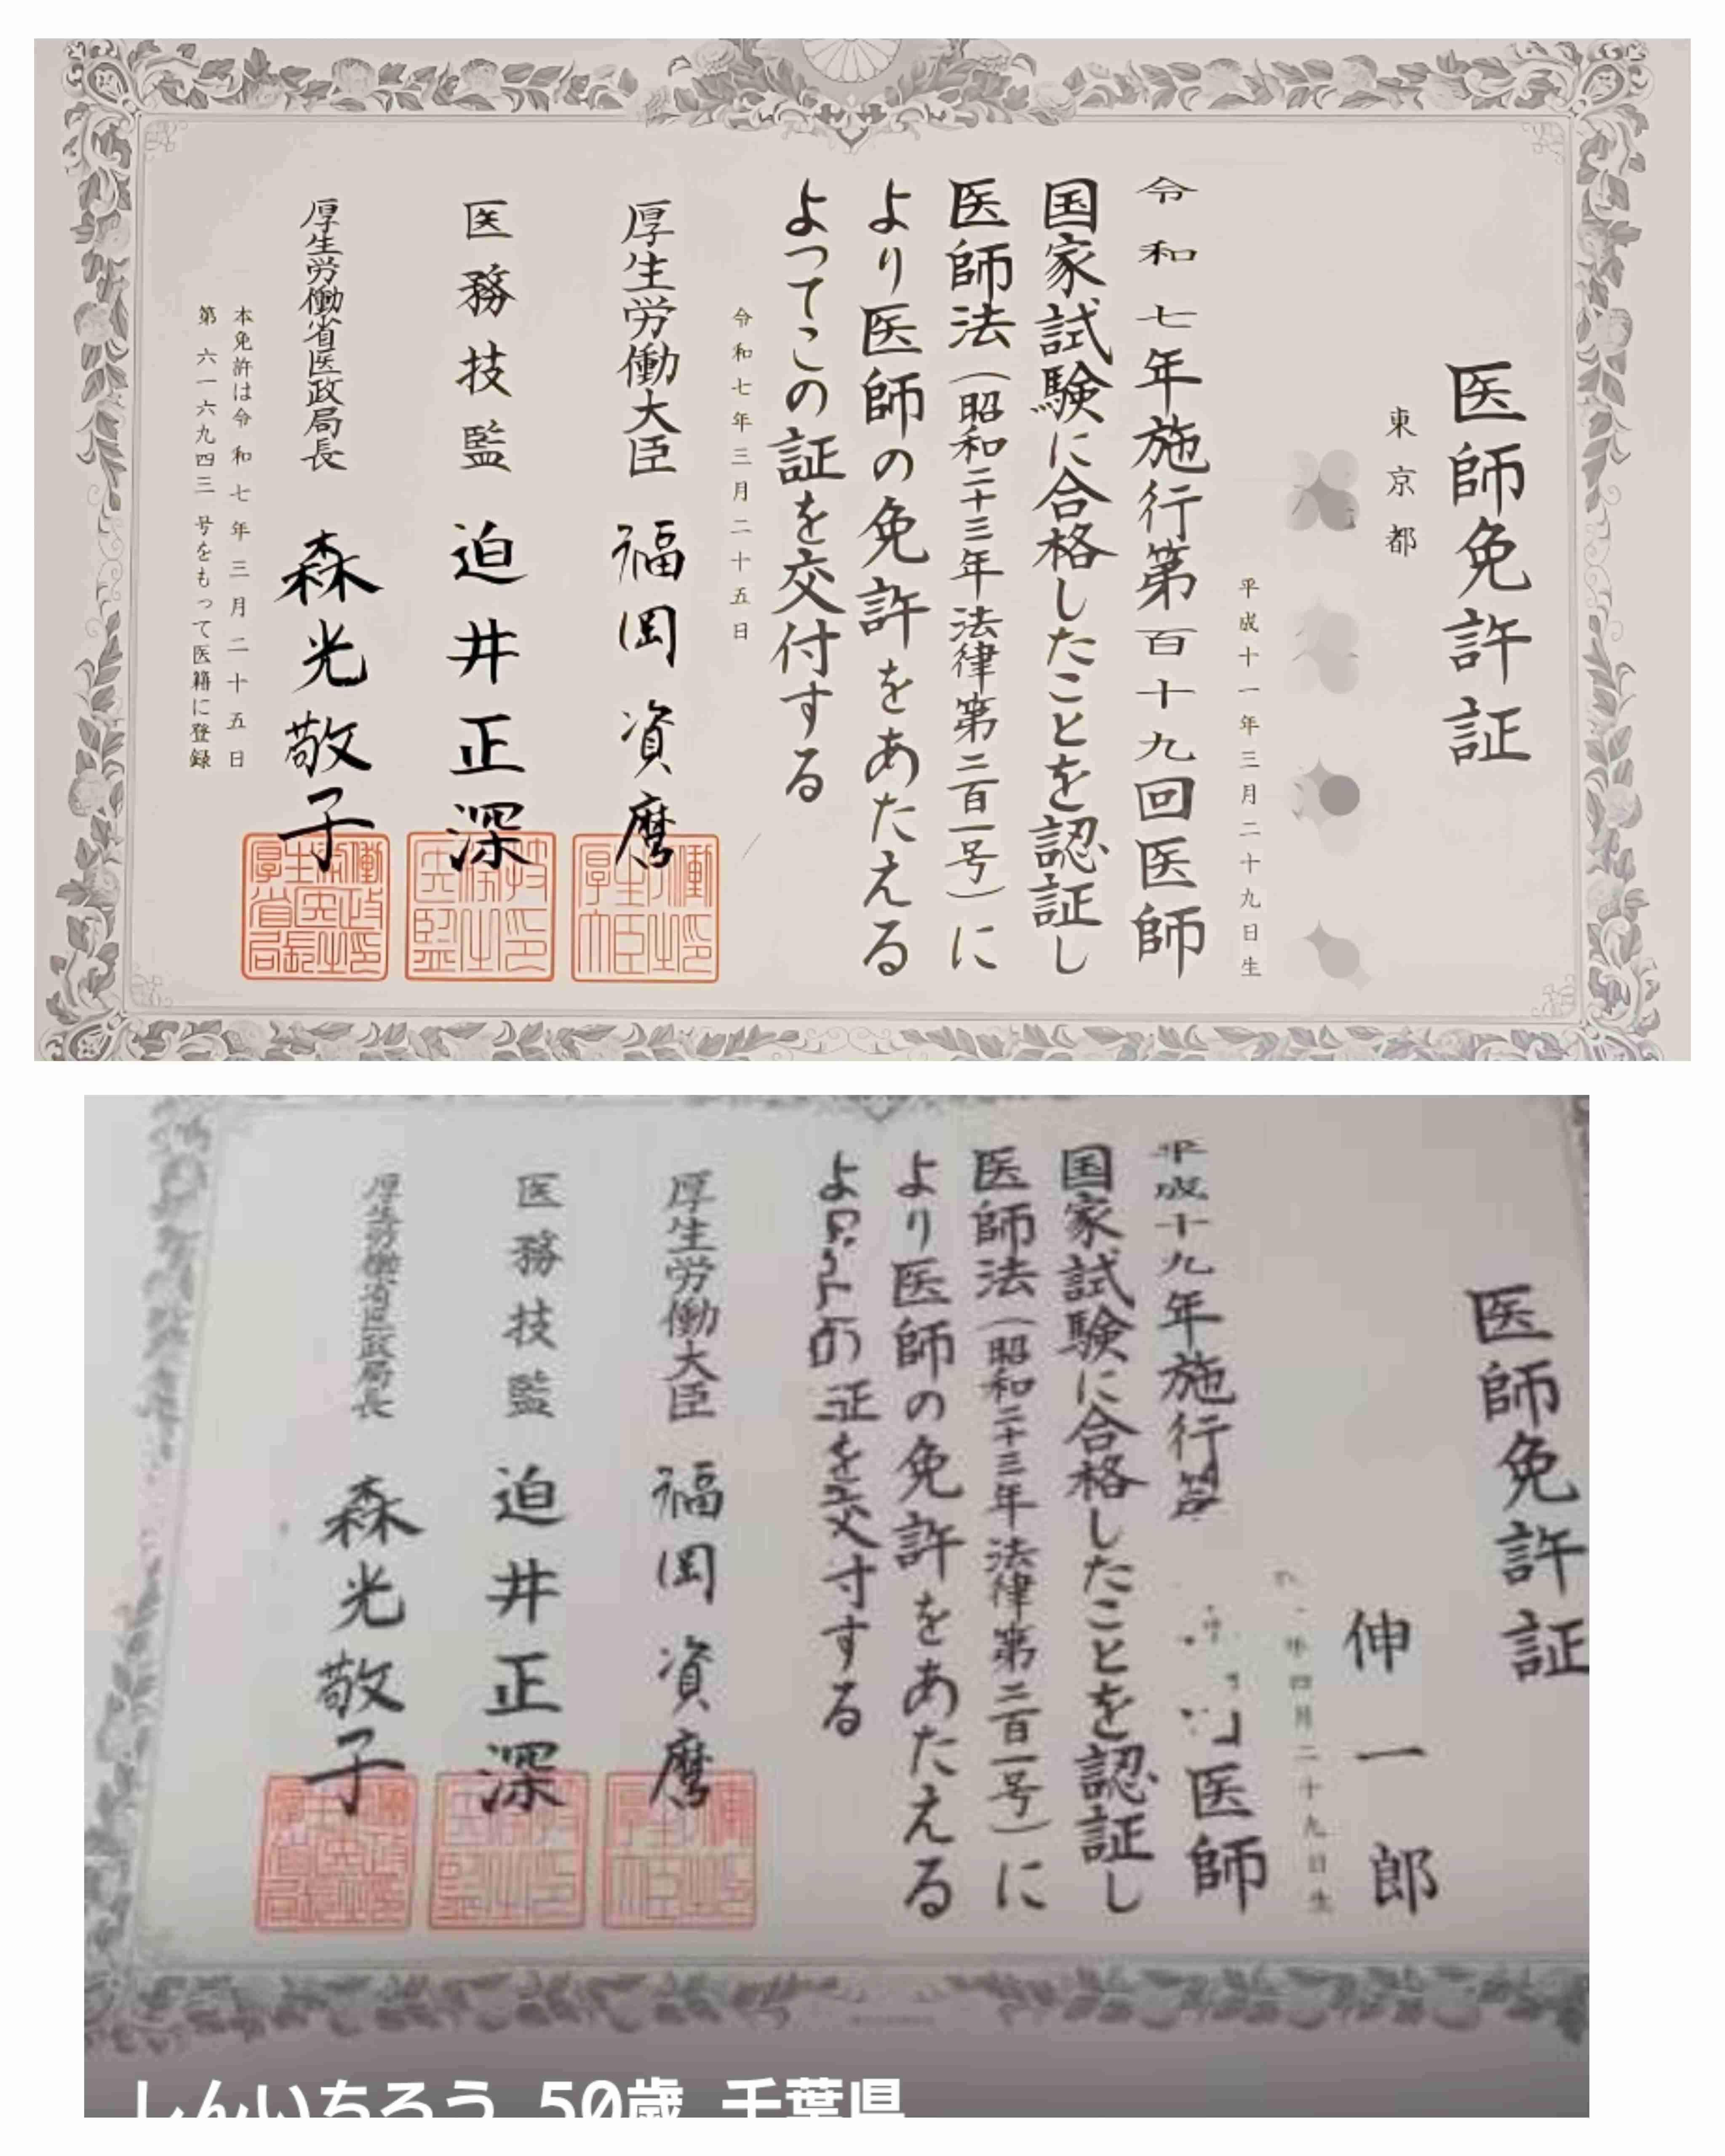 医師免許証
東京都
平成十一年三月二十九日生
令和七年施行第百十九回医師
国家試験に合格したことを認証し
医師法（昭和二十三年法律第二百一号）に
より医師の免許をあたえる
よつてこの証を交付する
令和七年三月二十五日
厚生労働大臣 福岡資麿
医務技監 迫井正深
厚生労働省医政局長 森光敬子
本免許は令和七年三月二十五日
第六一六九四三号をもって医籍に登録
医師免許証
伸一郎
年四月二十九日生
平成十九年施行 医師
国家試験に合格したことを認証し
医師法（昭和二十三年法律第二百一号）に
より医師の免許をあたえる
よ の を する
厚生労働大臣 福岡資麿
医務技監 迫井正深
厚生労働省医政局長 森光敬子
しんいちろう 50歳 千葉県